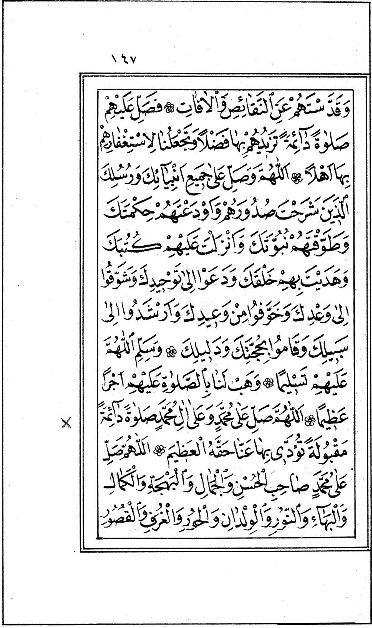 ١٤٧
وَقَدَّسْتَهُمْ عَنِ النَّقَائِصِ وَالْاٰفَاتِ ۞ فَصَلِّ عَلَيْهِمْ
صَلٰوةً دَآئِمَةً تَزِيدُهُمْ بِهَا فَضْلًا وَتَجْعَلُنَا لِاسْتِغْفَارِهِمْ
بِهَا اَهْلًا ۞ اَللّٰهُمَّ وَصَلِّ عَلٰى جَمِيعِ اَنْبِيَآئِكَ وَرُسُلِكَ
الَّذِينَ شَرَحْتَ صُدُورَهُمْ وَاَوْدَعْتَهُمْ حِكْمَتَكَ
وَطَوَّقْتَهُمْ نُبُوَّتَكَ وَاَنْزَلْتَ عَلَيْهِمْ كُتُبَكَ
وَهَدَيْتَ بِهِمْ خَلْقَكَ وَدَعَوْا اِلٰى تَوْحِيدِكَ وَشَوَّقُوا
اِلٰى وَعْدِكَ وَخَوَّفُوا مِنْ وَعِيدِكَ وَاَرْشَدُوا اِلٰى
سَبِيلِكَ وَقَامُوا بِحُجَّتِكَ وَدَلِيلِكَ ۞ وَسَلِّمِ اللّٰهُمَّ
عَلَيْهِمْ تَسْلِيمًا ۞ وَهَبْ لَنَا بِالصَّلٰوةِ عَلَيْهِمْ اَجْرًا
عَظِيمًا ۞ اَللّٰهُمَّ صَلِّ عَلٰى مُحَمَّدٍ وَعَلٰى اٰلِ مُحَمَّدٍ صَلٰوةً دَآئِمَةً
مَقْبُولَةً تُؤَدِّى بِهَا عَنَّا حَقَّهُ الْعَظِيمَ ۞ اَللّٰهُمَّ صَلِّ
عَلٰى مُحَمَّدٍ صَاحِبِ الْحُسْنِ وَالْجَمَالِ وَالْبَهْجَةِ وَالْكَمَالِ
وَالْبَهَآءِ وَالنُّورِ وَالْوِلْدَانِ وَالْحُورِ وَالْغُرَفِ وَالْقُصُورِ